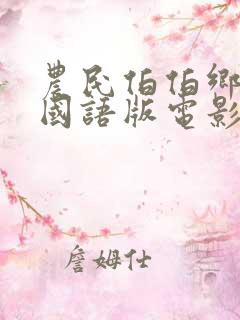 農民伯伯鄉
國語版電影
詹姆仕